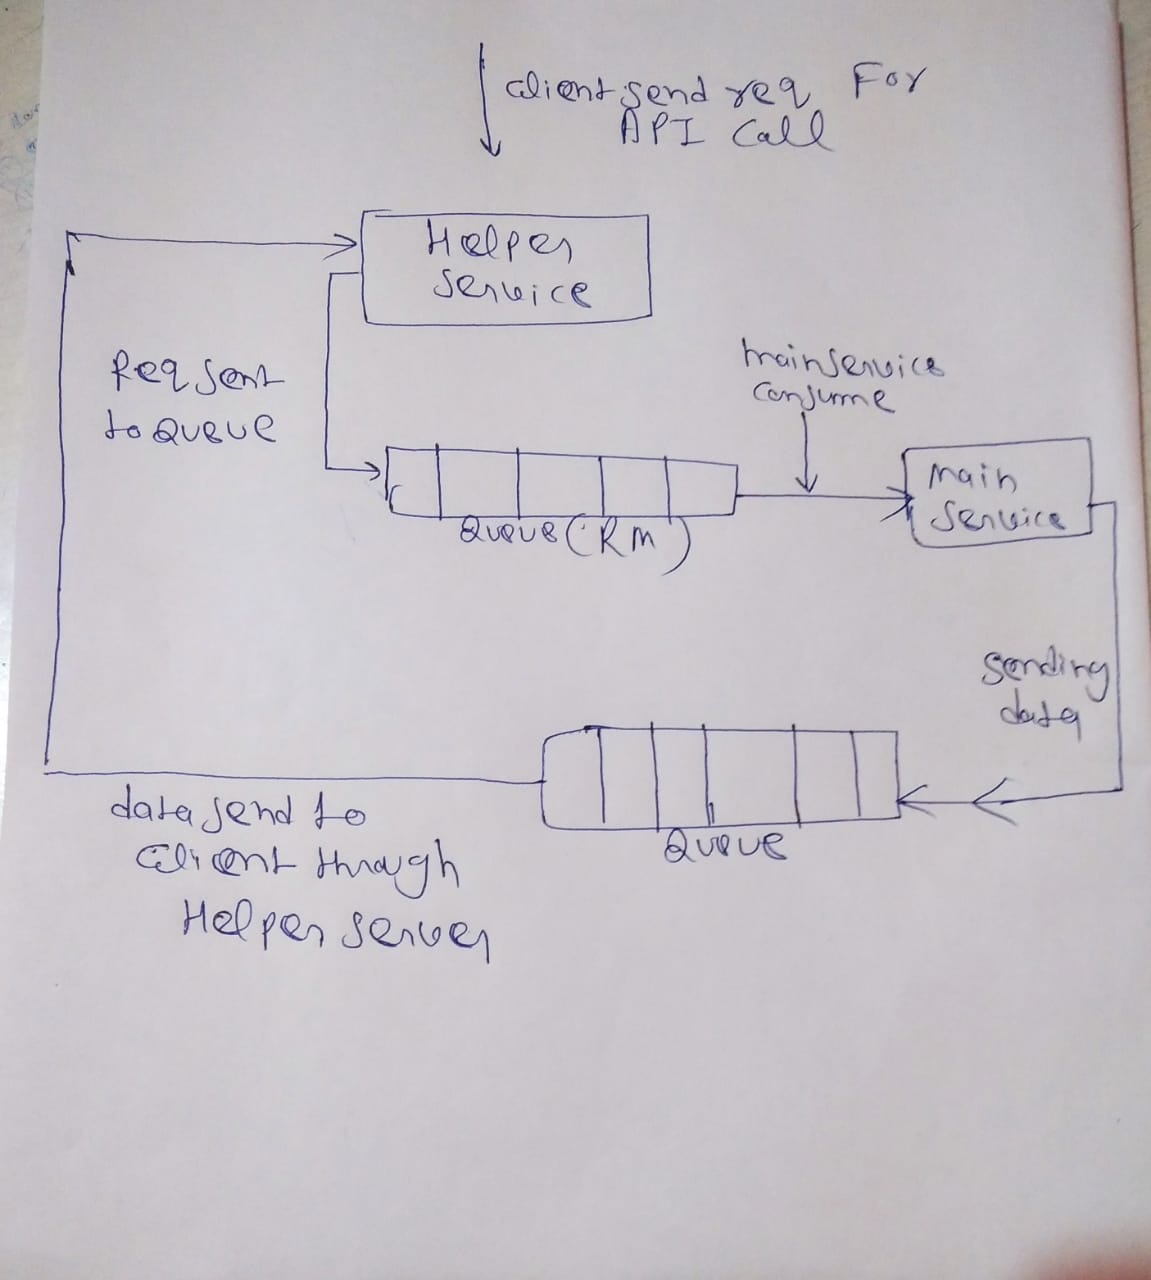 client send req For
API Call
Helper
Service
Req sent
to Queue
mainservice
consume
main
Service
Queue (RM)
sending
data
Queue
data send to
client through
Helper server